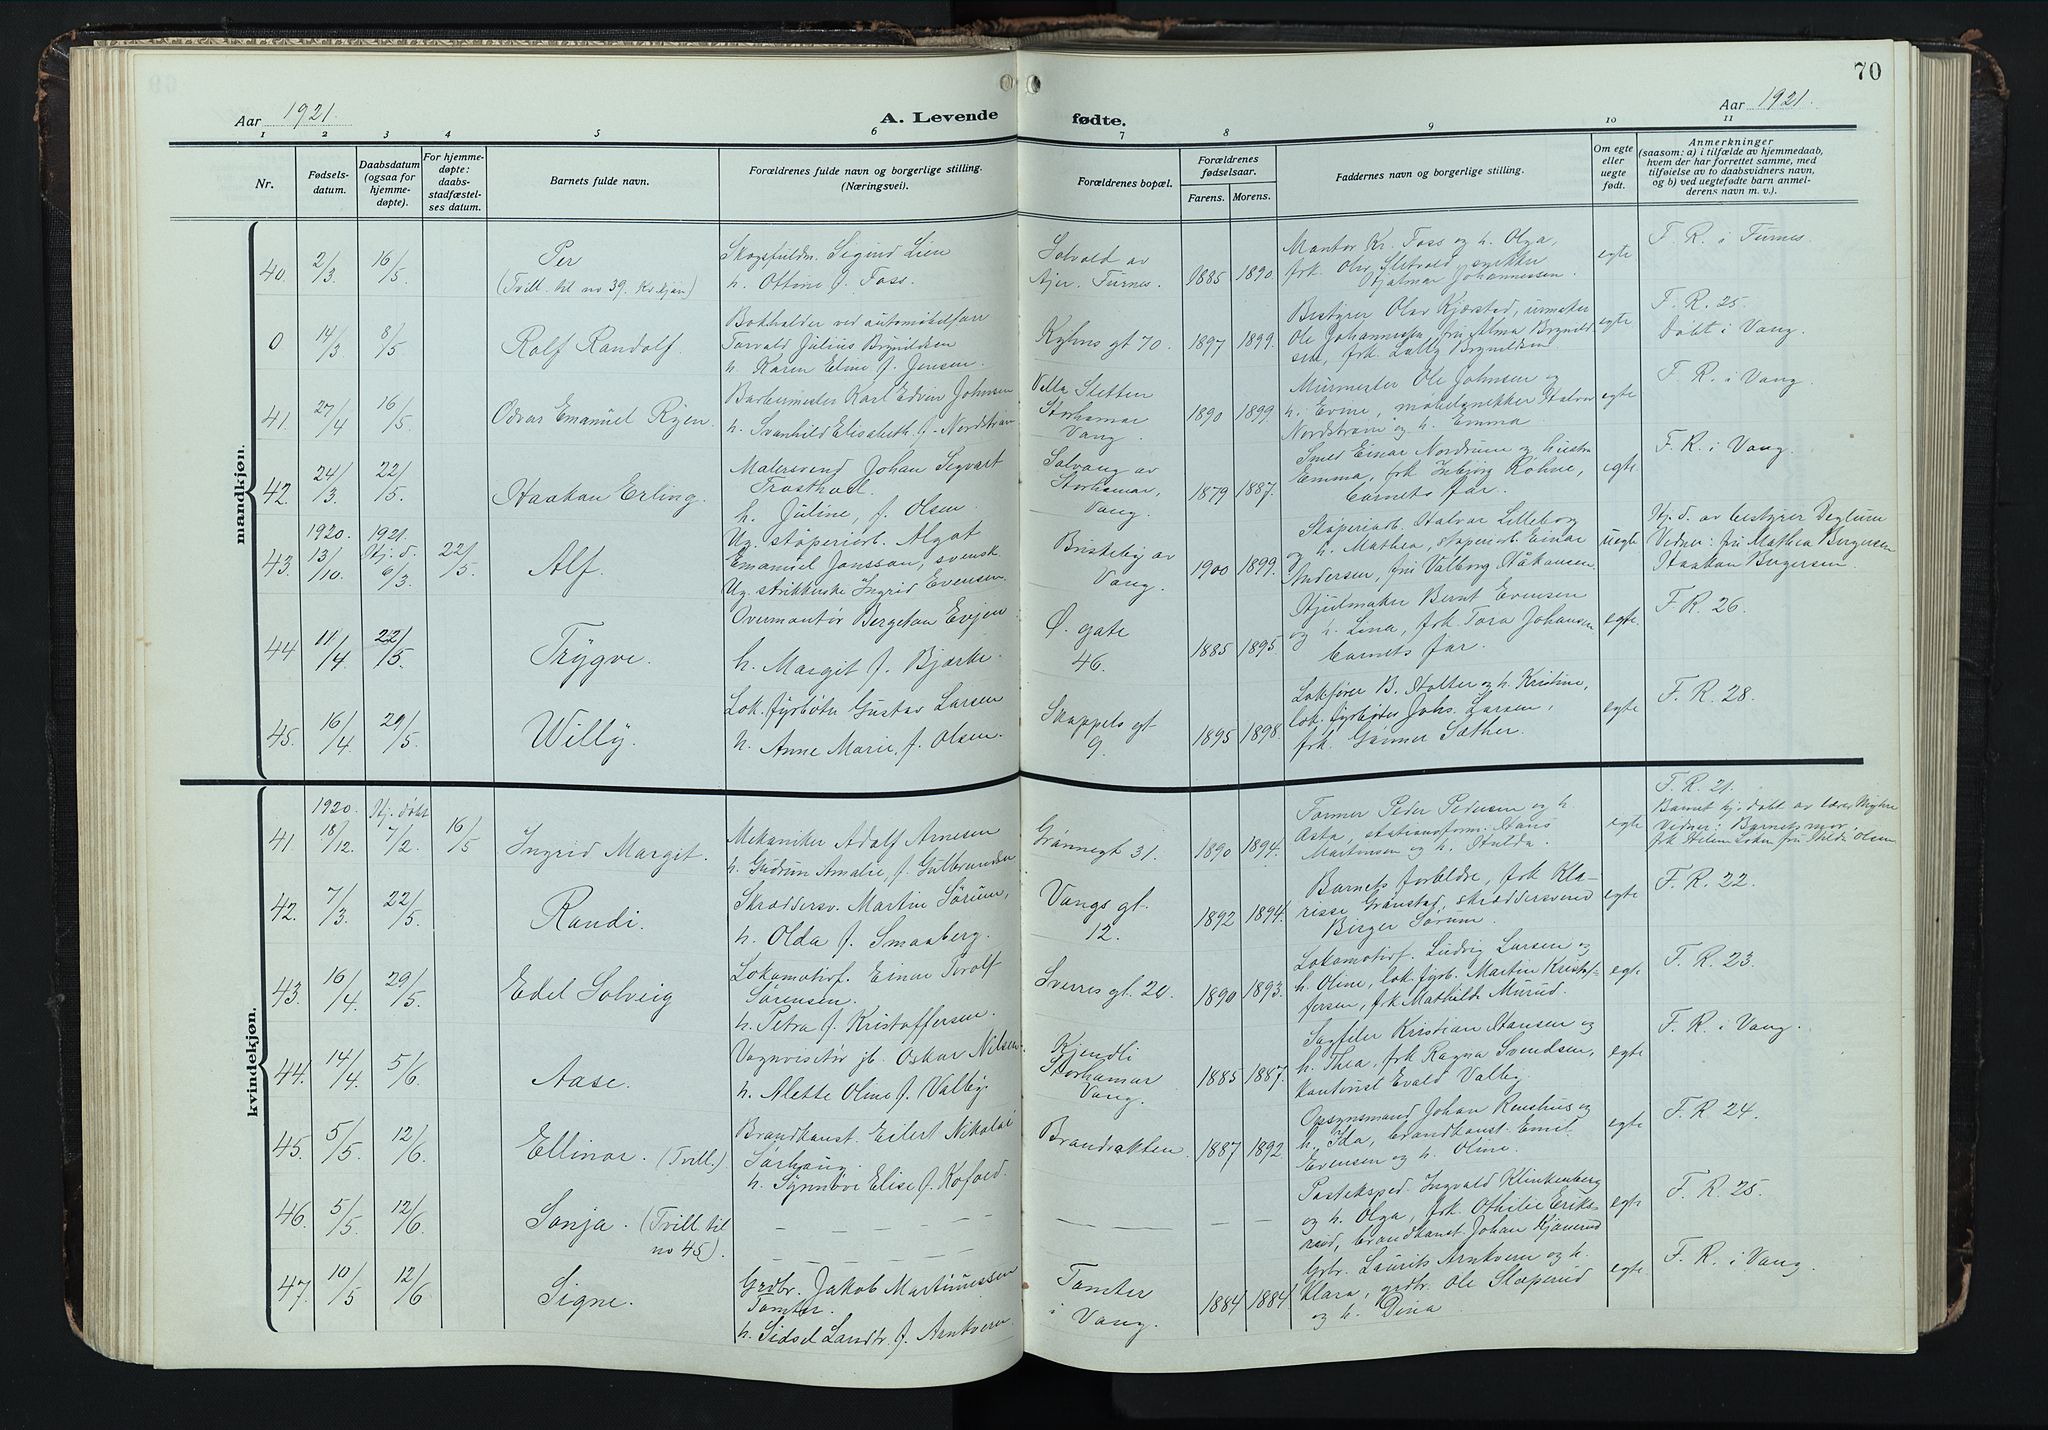 70
Aar 1921.
A. Levende fødte.
Aar 1921.
1 2 3 4 5 6 7 8 9 10 11
Nr.
Fødsels-
datum.
Daabsdatum
(ogsaa for
hjemme-
døpte).
For hjemme-
døpte:
daabs-
stadfæstel-
ses datum.
Barnets fulde navn.
Forældrenes fulde navn og borgerlige stilling.
(Næringsvei).
Forældrenes bopæl.
Forældrenes
fødselsaar.
Farens. Morens.
Faddernes navn og borgerlige stilling.
Om egte
eller
uegte
født.
Anmerkninger
(saasom: a) i tilfælde av hjemmedaab,
hvem der har forrettet samme, med
tilføielse av to daabsvidners navn,
og b) ved uegtefødte barn anmel-
derens navn m. v.).
mandkjøn.
40 2/3 16/5
Per
(Tvill. til no 39. Kv.kjøn)
Skogsfuldm. Sigurd Lien
h. Ottine f. Foss.
Solvold av
Ajer, Furnes.
1885 1890
Mantør Kr. Foss og h. Olga,
frk. Oliv Sletvold, snekker
Hjalmar Johannessen.
egte
F. R. i Furnes.
0 14/3 8/5
Rolf Randolf.
Bokholder ved automobilforr
Torvald Julius Brynildsen
h. Karen Eline f. Jensen.
Kyhns gt 70.
1897 1899.
Bestyrer Olav Kjørstad, urmaker
Ole Johannessen, fru Alma Brynild-
sen, frk. Lally Brynildsen
egte
F. R. 25.
Døbt i Vang.
41. 27/4 16/5
Odvar Emanuel Ryen.
Barbermester Karl Edvin Johnsen
h. Svanhild Elisabeth f. Nordstrøm
Villa Sletten
Storhamar
Vang.
1890 1899.
Murmester Ole Johnsen og
h. Evine, møbelsnekker Halvor
Nordstrøm og h. Emma.
egte
F. R. i Vang.
42. 24/3 22/5
Haakon Erling.
Malersvend Johan Segvart
Trosthoel.
h. Juline, f. Olsen.
Solvang av
Storhamar,
Vang.
1879 1887.
Smed Einar Nordrum og hustru
Emma, frk Inbjørg Røhne,
barnets far.
egte
F. R. i Vang.
43. 1920. 13/10. 1921. Hj. d. 6/3. 22/5
Alf.
Ug. støperiarb. Algot
Emanuel Jonsson, svensk
Ug. strikkerske Ingrid Evensen
Buskeby av
Vang.
1900 1899.
Støperiarb. Halvar Lilleborg
og h. Mathea, støperiarb Einar
Andersen, fru Valborg Håkonsen.
uegte
Hj. d. av bestyrer Veglum
Vidner: fru Mathea Bergersen
Haakon Bergersen.
44 11/4 22/5.
Trygve.
Overmontør Bergeton Evjen
h. Margit f. Bjerke.
Ø. gate
46.
1885 1895
Hjulmaker Bernt Evensen
og h. Lina, frk. Tora Johansen
barnets far.
egte.
F. R. 26.
45. 16/4 29/5.
Willy.
Lok. fyrbøter Gustav Larsen
h. Anne Marie, f. Olsen.
Skappels gt
9.
1895 1898.
Lokfører B. Holter og h. Kristine,
lok. fyrbøter Johs. Larsen,
frk. Gunnor Sæther.
egte
F. R. 28.
kvindekjøn.
41. 1920. 18/12. Hj. døbt 7/2. 16/5
Ingrid Margit.
Mekaniker Adolf Arnesen
h. Gudrun Amalie, f. Gulbrandsen
Grønnegt 31.
1890 1894.
Former Peder Pedersen og h.
Asta, stationsform. Hans
Martinsen og h. Hulda.
egte
F. R. 21.
Barnet hj. døbt av lærer Myhre
Vidner: Barnets mor,
frk Helene Løken fru Hilda Olsen
42. 7/3. 22/5.
Randi.
Skræddersv. Martin Sørum,
h. Olda f. Smaaberg.
Vangs gt.
12.
1892 1894.
Barnets forældre, frk Kla-
risse Grønstad, skræddersvend
Berger Sørum.
egte
F. R. 22.
43. 16/4. 29/5.
Edel Solveig
Lokomotivf. Einar Trolf
Sørensen.
h. Petra f. Kristoffersen.
Sverres gt. 20.
1890 1893.
Lokomotivf. Ludvig Larsen og
h. Oline, lok. fyrb. Martin Kristof-
fersen, frk Mathilde Murud.
egte
F. R. 23.
44. 14/4. 5/6.
Aase.
Vognvisitør jb. Oskar Nilsen.
h. Alette Oline f. Valby.
Kjendli
Storhamar
Vang.
1885 1887.
Sagfiler Kristian Hansen og
h. Thea, frk Ragna Svendsen,
kontorist Evald Valby.
egte
F. R. i Vang.
45. 5/5. 12/6.
Ellinor. (Tvill.)
Brandkonst. Eilert Nikolai
Sørhaug.
h. Synnøve Elise f. Kofoed.
Brandvakten.
1887 1892
Opsynsmand Johan Renshus og
h. Ida, brandkonst. Emil
Evensen og h. Oline.
egte
F. R. 24.
46. 5/5. 12/6.
Sonja. (Tvill til
no 45).
— — — —
— — — —
— — —
— —
Posteksped. Ingvald Klinkenberg
og h. Olga, frk. Othilie Eriks-
rud, brandkonst Johan Kjønerud
egte
F. R. 25.
47. 10/5 12/6
Signe.
Grdbr. Jakob Martinussen
Tomter.
h. Sidsel Landbr. f. Arnkvern.
Tomter
i
Vang.
1884 1884
Grbr. Laurits Arnkvern og h.
Klara, grdbr. Ole Stoperud
og h. Dina.
egte
F. R. i Vang.